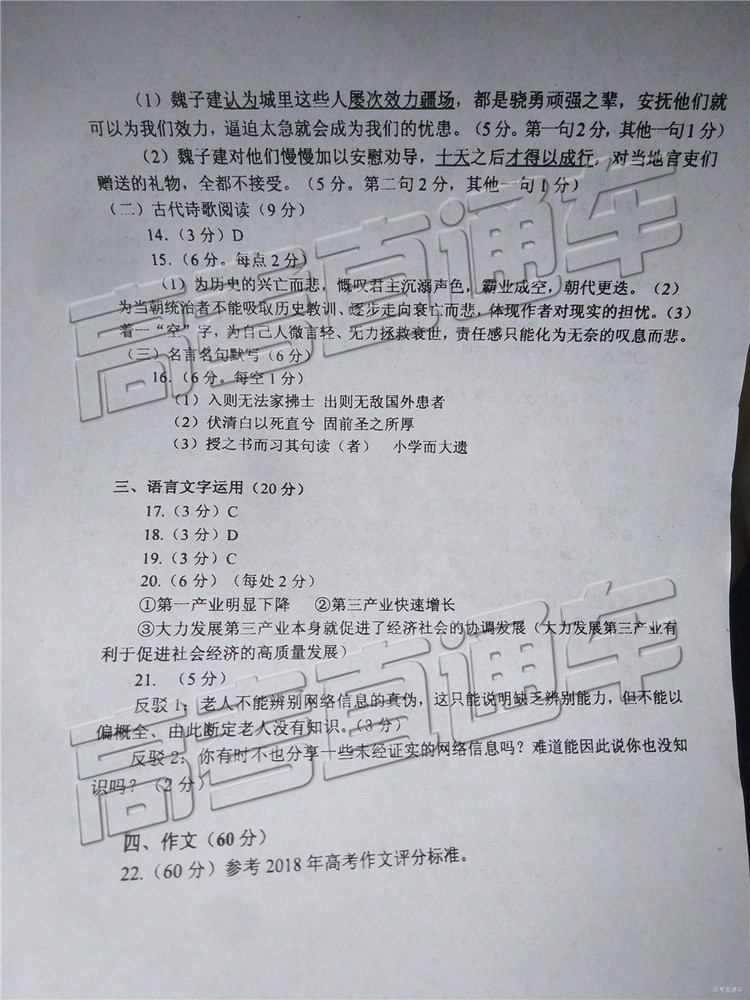 （1）魏子建认为城里这些人屡次效力疆场，都是骁勇顽强之辈，安抚他们就
可以为我们效力，逼迫太急就会成为我们的忧患。（5分。第一句2分，其他一句1分）
（2）魏子建对他们慢慢加以安慰劝导，十天之后才得以成行，对当地官吏们
赠送的礼物，全都不接受。（5分。第二句2分，其他一句1分）
（二）古代诗歌阅读（9分）
14.（3分）D
15.（6分。每点2分）
（1）为历史的兴亡而悲，慨叹君主沉溺声色，霸业成空，朝代更迭。（2）
为当朝统治者不能吸取历史教训、逐步走向衰亡而悲，体现作者对现实的担忧。（3）
着一“空”字，为自己人微言轻、无力拯救衰世，责任感只能化为无奈的叹息而悲。
（三）名言名句默写（6分）
16.（6分。每空1分）
（1）入则无法家拂士 出则无敌国外患者
（2）伏清白以死直兮 固前圣之所厚
（3）授之书而习其句读（者） 小学而大遗
三、语言文字运用（20分）
17.（3分）C
18.（3分）D
19.（3分）C
20.（6分）（每处2分）
①第一产业明显下降 ②第三产业快速增长
③大力发展第三产业本身就促进了经济社会的协调发展（大力发展第三产业有
利于促进社会经济的高质量发展）
21. （5分）
反驳1：老人不能辨别网络信息的真伪，这只能说明缺乏辨别能力，但不能以
偏概全、由此断定老人没有知识。（3分）
反驳2：你有时不也分享一些未经证实的网络信息吗？难道能因此说你也没知
识吗？（2分）
四、作文（60分）
22.（60分）参考2018年高考作文评分标准。
高考直通车
高考直通车
高考直通车